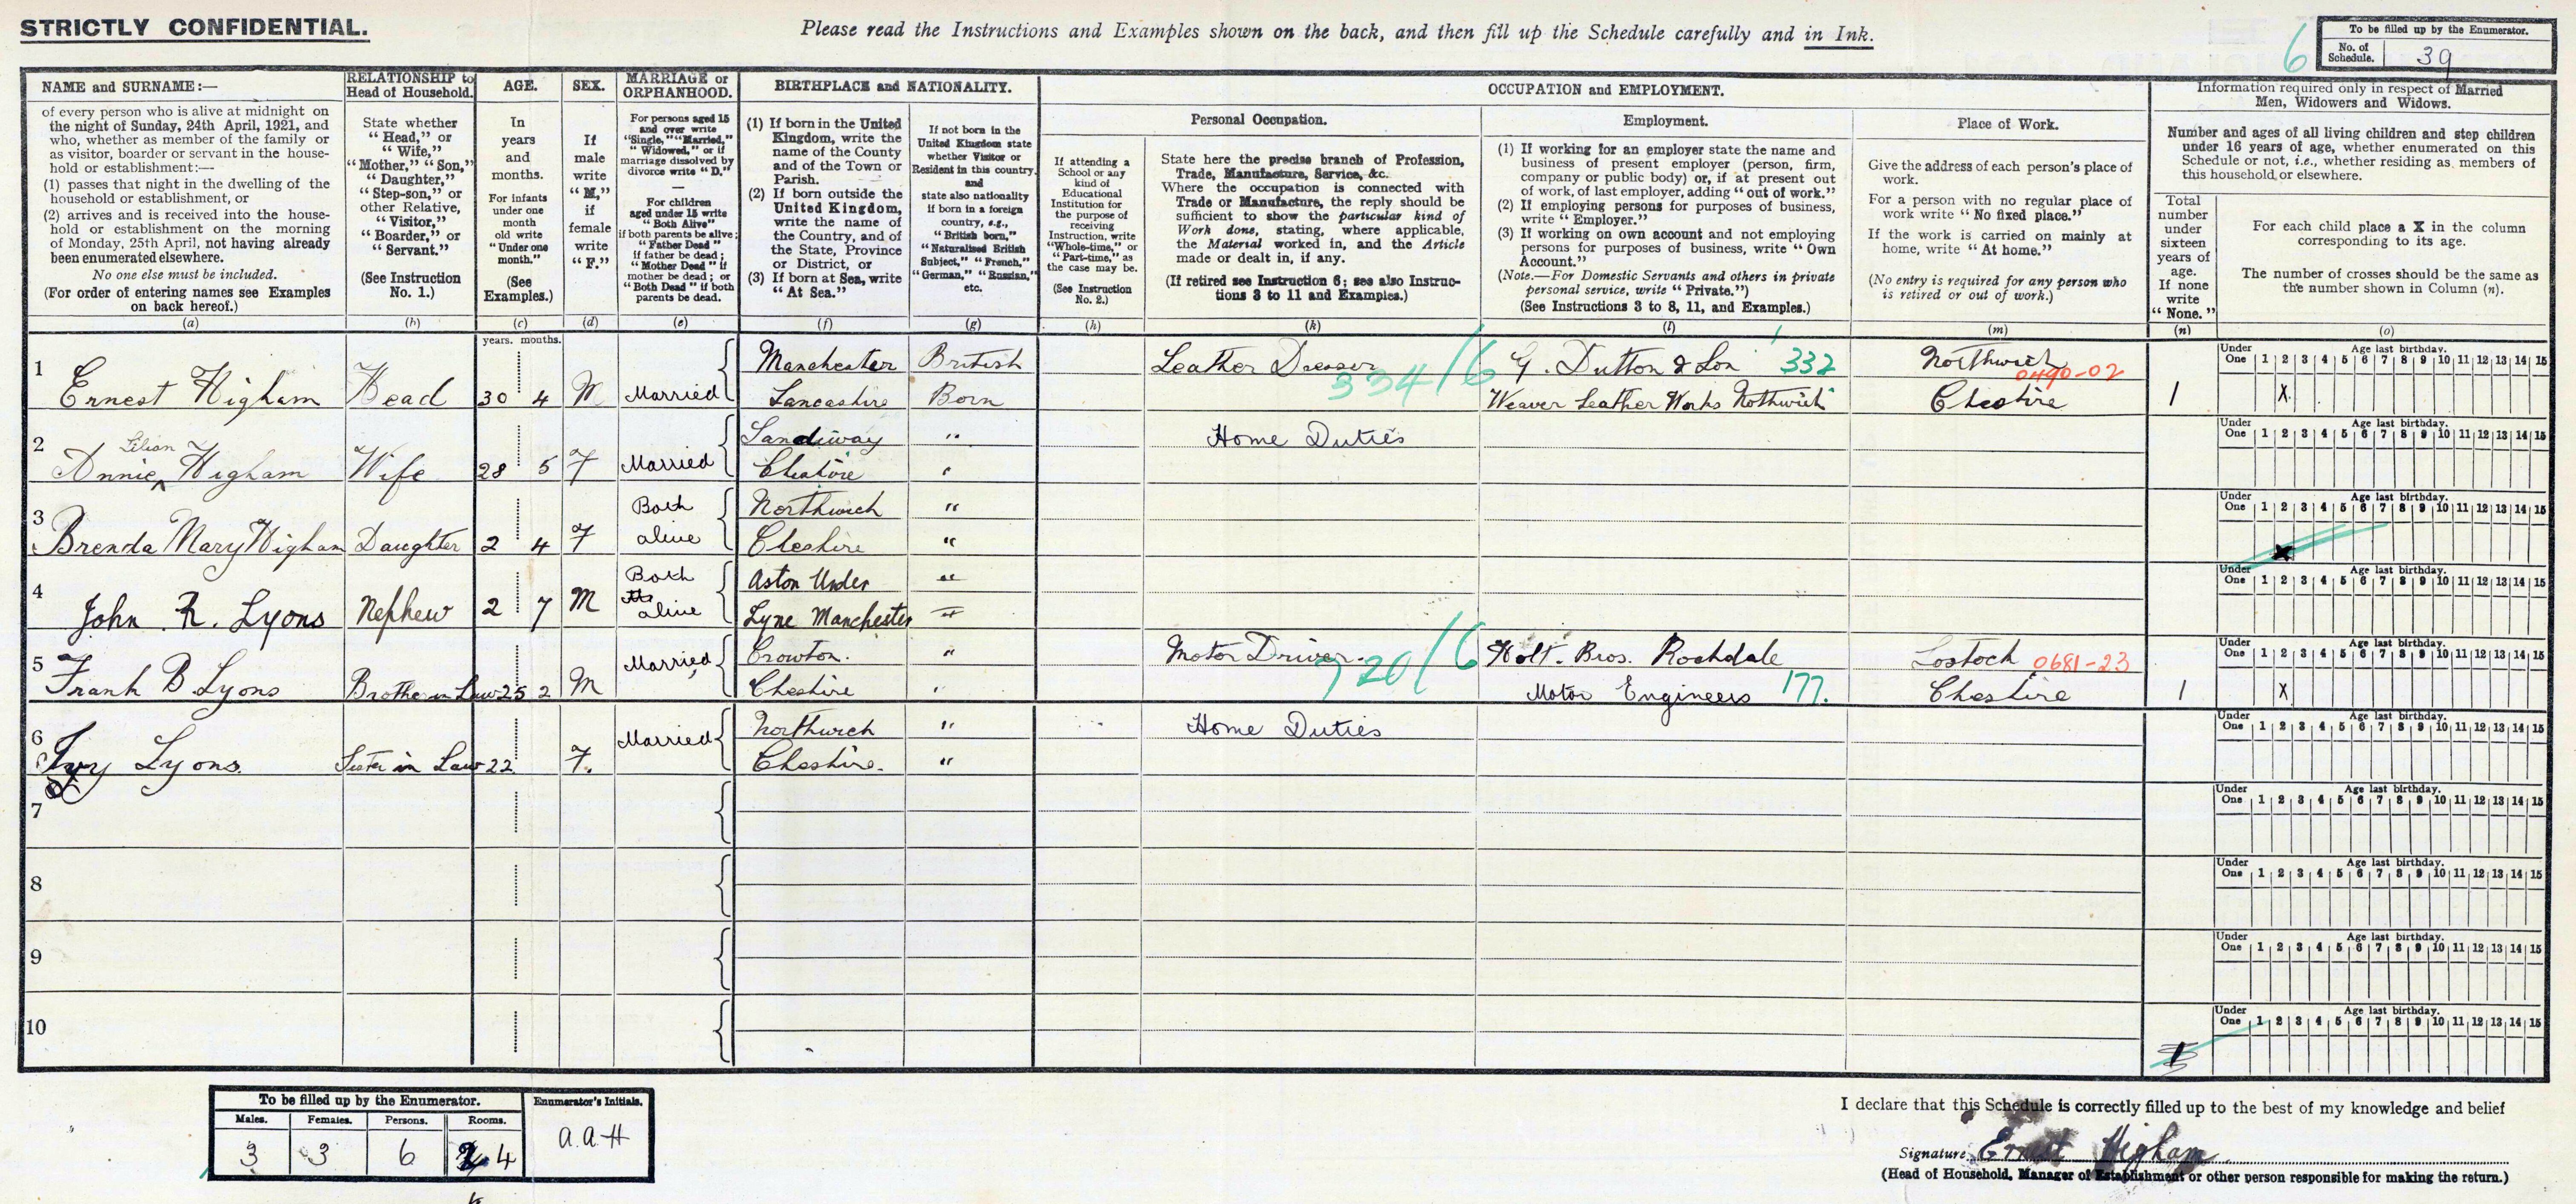 STRICTLY CONFIDENTIAL.
Please read the Instructions and Examples shown on the back, and then fill up the Schedule carefully and in Ink.
6
To be filled up by the Enumerator.
No. of Schedule. 39
NAME and SURNAME:—
of every person who is alive at midnight on
the night of Sunday, 24th April, 1921, and
who, whether as member of the family or
as visitor, boarder or servant in the house-
hold or establishment:—
(1) passes that night in the dwelling of the
household or establishment, or
(2) arrives and is received into the house-
hold or establishment on the morning
of Monday, 25th April, not having already
been enumerated elsewhere.
No one else must be included.
(For order of entering names see Examples
on back hereof.)
(a)
RELATIONSHIP to
Head of Household.
State whether
"Head," or
"Wife,"
"Mother," "Son,"
"Daughter,"
"Step-son," or
other Relative,
"Visitor,"
"Boarder," or
"Servant."
(See Instruction
No. 1.)
(b)
AGE.
In
years
and
months.
For infants
under one
month
old write
"Under one
month."
(See
Examples.)
(c)
SEX.
If
male
write
"M,"
if
female
write
"F."
(d)
MARRIAGE or
ORPHANHOOD.
For persons aged 15
and over write
"Single," "Married,"
"Widowed," or if
marriage dissolved by
divorce write "D."
—
For children
aged under 15 write
"Both Alive"
if both parents be alive;
"Father Dead"
if father be dead;
"Mother Dead" if
mother be dead; or
"Both Dead" if both
parents be dead.
(e)
BIRTHPLACE and NATIONALITY.
(1) If born in the United
Kingdom, write the
name of the County
and of the Town or
Parish.
(2) If born outside the
United Kingdom,
write the name of
the Country, and of
the State, Province
or District, or
(3) If born at Sea, write
"At Sea."
(f)
If not born in the
United Kingdom state
whether Visitor or
Resident in this country.
and
state also nationality
if born in a foreign
country, e.g.,
"British born,"
"Naturalised British
Subject," "French,"
"German," "Russian,"
etc.
(g)
OCCUPATION and EMPLOYMENT.
If attending a
School or any
kind of
Educational
Institution for
the purpose of
receiving
Instruction, write
"Whole-time," or
"Part-time," as
the case may be.
(See Instruction
No. 2.)
(h)
Personal Occupation.
State here the precise branch of Profession,
Trade, Manufacture, Service, &c.
Where the occupation is connected with
Trade or Manufacture, the reply should be
sufficient to show the particular kind of
Work done, stating, where applicable,
the Material worked in, and the Article
made or dealt in, if any.
(If retired see Instruction 6; see also Instruc-
tions 3 to 11 and Examples.)
(k)
Employment.
(1) If working for an employer state the name and
business of present employer (person, firm,
company or public body) or, if at present out
of work, of last employer, adding "out of work."
(2) If employing persons for purposes of business,
write "Employer."
(3) If working on own account and not employing
persons for purposes of business, write "Own
Account."
(Note.—For Domestic Servants and others in private
personal service, write "Private.")
(See Instructions 3 to 8, 11, and Examples.)
(l)
Place of Work.
Give the address of each person's place of
work.
For a person with no regular place of
work write "No fixed place."
If the work is carried on mainly at
home, write "At home."
(No entry is required for any person who
is retired or out of work.)
(m)
Information required only in respect of Married
Men, Widowers and Widows.
Number and ages of all living children and step children
under 16 years of age, whether enumerated on this
Schedule or not, i.e., whether residing as members of
this household or elsewhere.
Total
number
under
sixteen
years of
age.
If none
write
"None."
(n)
For each child place a X in the column
corresponding to its age.
The number of crosses should be the same as
the number shown in Column (n).
(o)
years. months.
Under Age last birthday.
One 1 2 3 4 5 6 7 8 9 10 11 12 13 14 15
1 Manchester British Leather Dresser 334/6 G. Dutton & Son 332 Northwich 0490-02
Ernest Higham Head 30 4 M Married Lancashire Born Weaver Leather Works Nothwich Cheshire 1 X
Under Age last birthday.
One 1 2 3 4 5 6 7 8 9 10 11 12 13 14 15
2 Lilian Sandiway " Home Duties
Annie Higham Wife 28 5 F Married Cheshire "
Under Age last birthday.
One 1 2 3 4 5 6 7 8 9 10 11 12 13 14 15
3 Both Northwich "
Brenda Mary Higham Daughter 2 4 F alive Cheshire " X
Under Age last birthday.
One 1 2 3 4 5 6 7 8 9 10 11 12 13 14 15
4 Both Aston Under "
John R. Lyons Nephew 2 7 M alive Lyne Manchester "
Under Age last birthday.
One 1 2 3 4 5 6 7 8 9 10 11 12 13 14 15
5 Crowton. " Motor Driver. 720/6 Holt. Bros. Rochdale Lostock 0681-23
Frank B Lyons Brother in Law 25 2 M Married Cheshire " Motor Engineers 177. Cheshire 1 X
Under Age last birthday.
One 1 2 3 4 5 6 7 8 9 10 11 12 13 14 15
6 Northwich " Home Duties
Ivy Lyons. Sister in Law 22 F. Married Cheshire. "
Under Age last birthday.
One 1 2 3 4 5 6 7 8 9 10 11 12 13 14 15
7
Under Age last birthday.
One 1 2 3 4 5 6 7 8 9 10 11 12 13 14 15
8
Under Age last birthday.
One 1 2 3 4 5 6 7 8 9 10 11 12 13 14 15
9
Under Age last birthday.
One 1 2 3 4 5 6 7 8 9 10 11 12 13 14 15
10
To be filled up by the Enumerator. Enumerator's Initials.
Males. Females. Persons. Rooms.
3 3 6 4 A.A.H
I declare that this Schedule is correctly filled up to the best of my knowledge and belief
Signature Ernest Higham
(Head of Household, Manager of Establishment or other person responsible for making the return.)